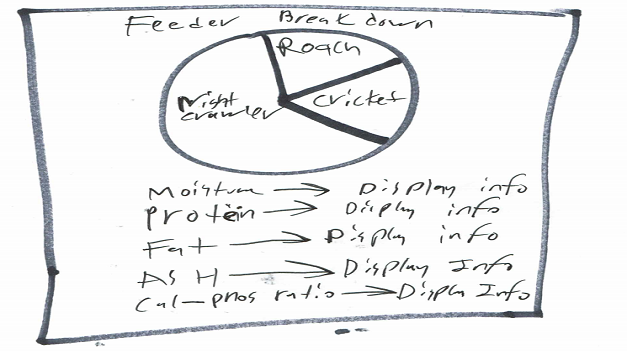 Feeder Breakdown
Roach
Night
crawler
Cricket
Moisture → Display info
protein → Display info
Fat → Display info
ASH → Display Info
Cal-phos ratio → Displa Info